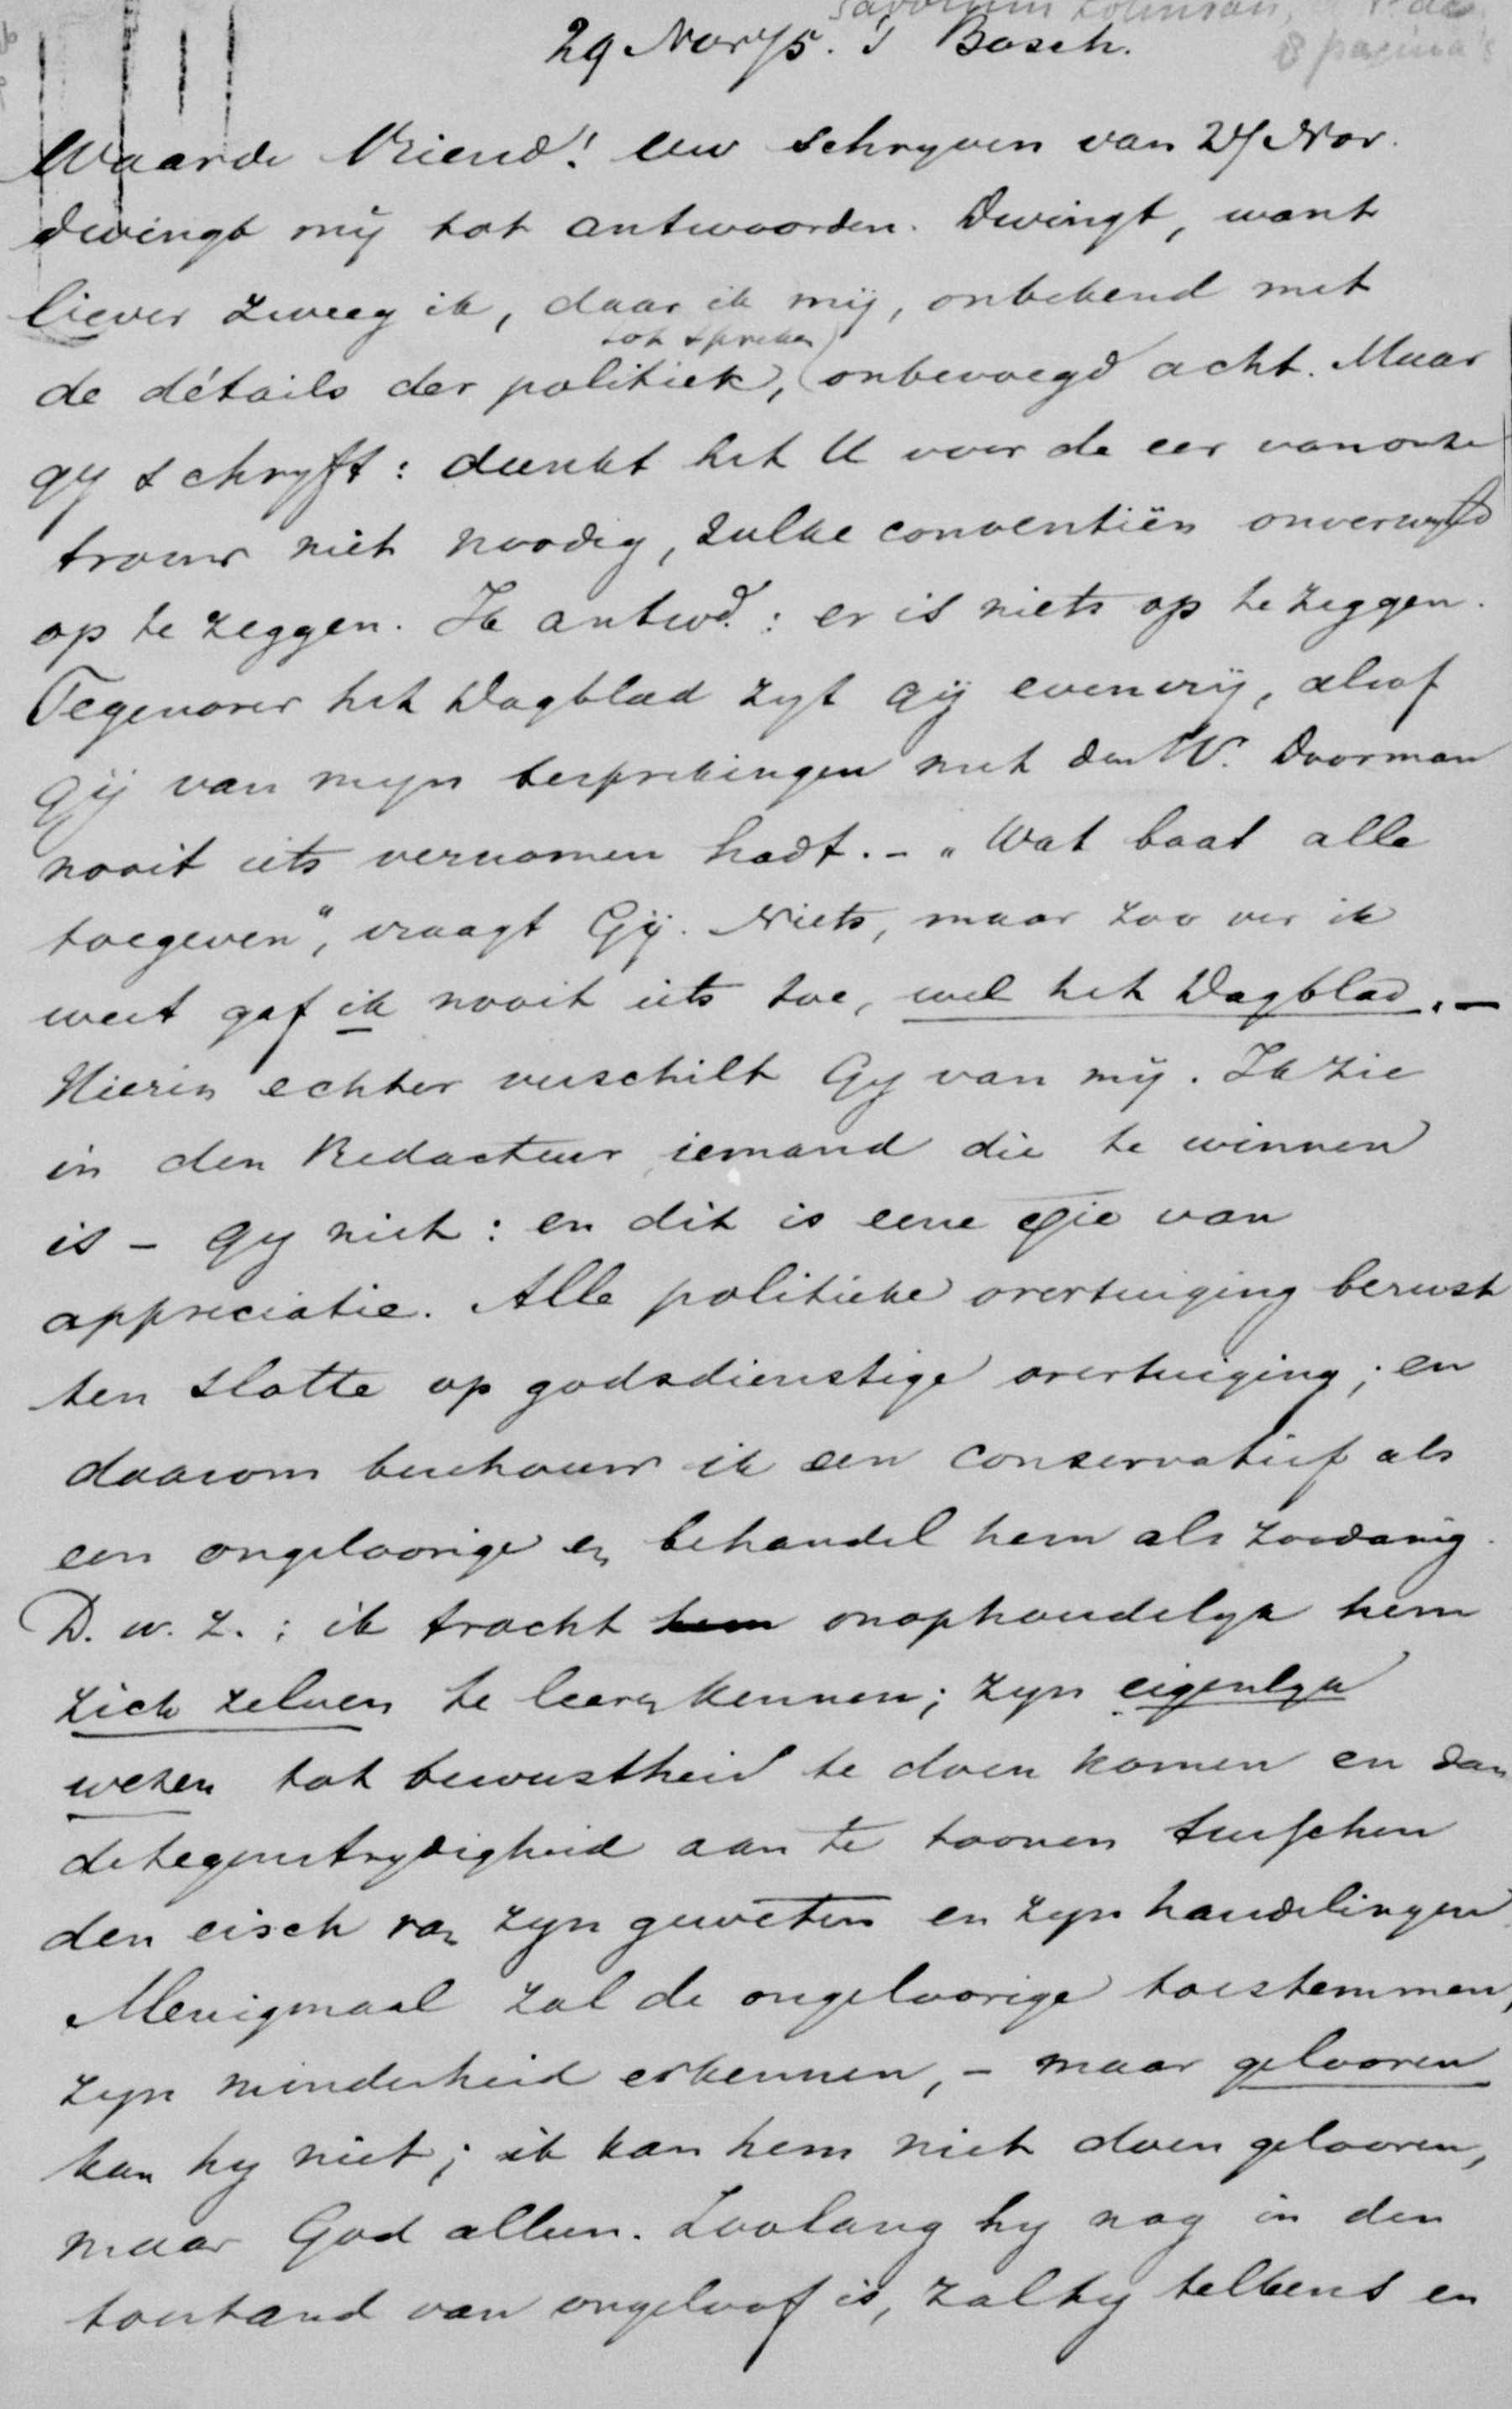 Savornin Lohman,
8 pagina's
29 Nov 75. 's Bosch.
Waarde Vriend! Uw schryven van 27 Nov.
dwingt mij tot antwoorden. Dwingt, want
liever zweeg ik, daar ik mij, onbekend met
de détails der politiek, (tot spreken) onbevoegd acht. Maar
gy schryft: dunkt het U voor de eer van onze
trouw niet noodig, zulke conventiën onverwyld
op te zeggen. Ik antwd.: er is niets op te zeggen.
Tegenover het Dagblad zyt gij even vrij, alsof
Gij van myn besprekingen met den W. Doorman
nooit iets vernomen hadt. - „Wat baat alle
toegeven", vraagt Gij. Niets, maar zoo ver ik
weet gaf ik nooit iets toe, wel het Dagblad. -
Hierin echter verschilt Gy van mij. Ik zie
in den Redacteur iemand die te winnen
is - gy niet: en dit is eene qie van
appreciatie. Alle politieke overtuiging berust
ten slotte op godsdienstige overtuiging; en
daarom beschouw ik een conservatief als
een ongeloovige en behandel hem als zoodanig.
D. w. z.: ik tracht hem onophoudelyk hem
zich zelven te leeren kennen; zyn eigenlyk
wezen tot bewustheid te doen komen en dan
de tegenstrydigheid aan te toonen tusschen
den eisch van zyn geweten en zyn handelingen
Menigmaal zal de ongeloovige toestemmen,
zyn minderheid erkennen, - maar gelooven
kan hy niet; ik kan hem niet doen gelooven,
maar God alleen. Zoolang hy nog in den
toestand van ongeloof is, zal hy telkens en